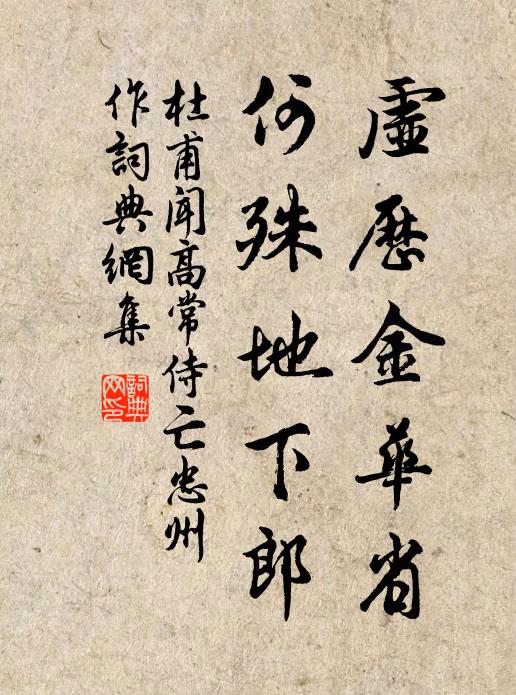 虛歷金華省
何殊地下郎
杜甫聞高常侍亡忠州
作詞典網集
詞典網印